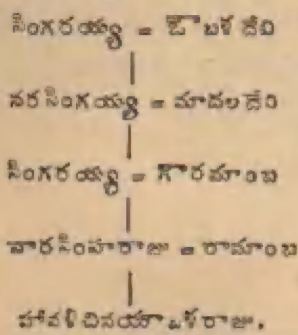 సింగరయ్య = ఔబళ దేవి
నరసింగయ్య = మాదల దేవి
సింగరయ్య = గౌరమాంబ
నారసింహరాజు = రామాంబ
హావళి చినయౌబళరాజు.